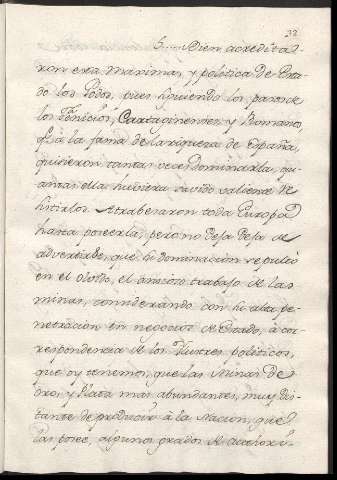 32
6.... Bien acredita-
ron esta maxima, y politica de Esta-
do los Godos, pues siguiendo los pasos de
los Fenicios, Cartaginenses, y Romanos,
qe. à la fama de la riqueza de España,
quisieron tantas veces Dominarla, qu-
antas ella huviera savido valiente Re-
sistirlos. Atrabesaron toda Europa
hasta poseerla, pero no deja de
advertirse, que su dominacion sepultò
en el olvido, el ancioso trabajo de las
minas, considerando con su alta pe-
netracion en negocios de Estado, à cor-
respondencia de los Ilustres politicos,
que oy tenemos, que las Minas de
Oro, y Plata mas abundantes, muy dis-
tante de producir à la Nacion, que
las posee, algunos grados de autori-